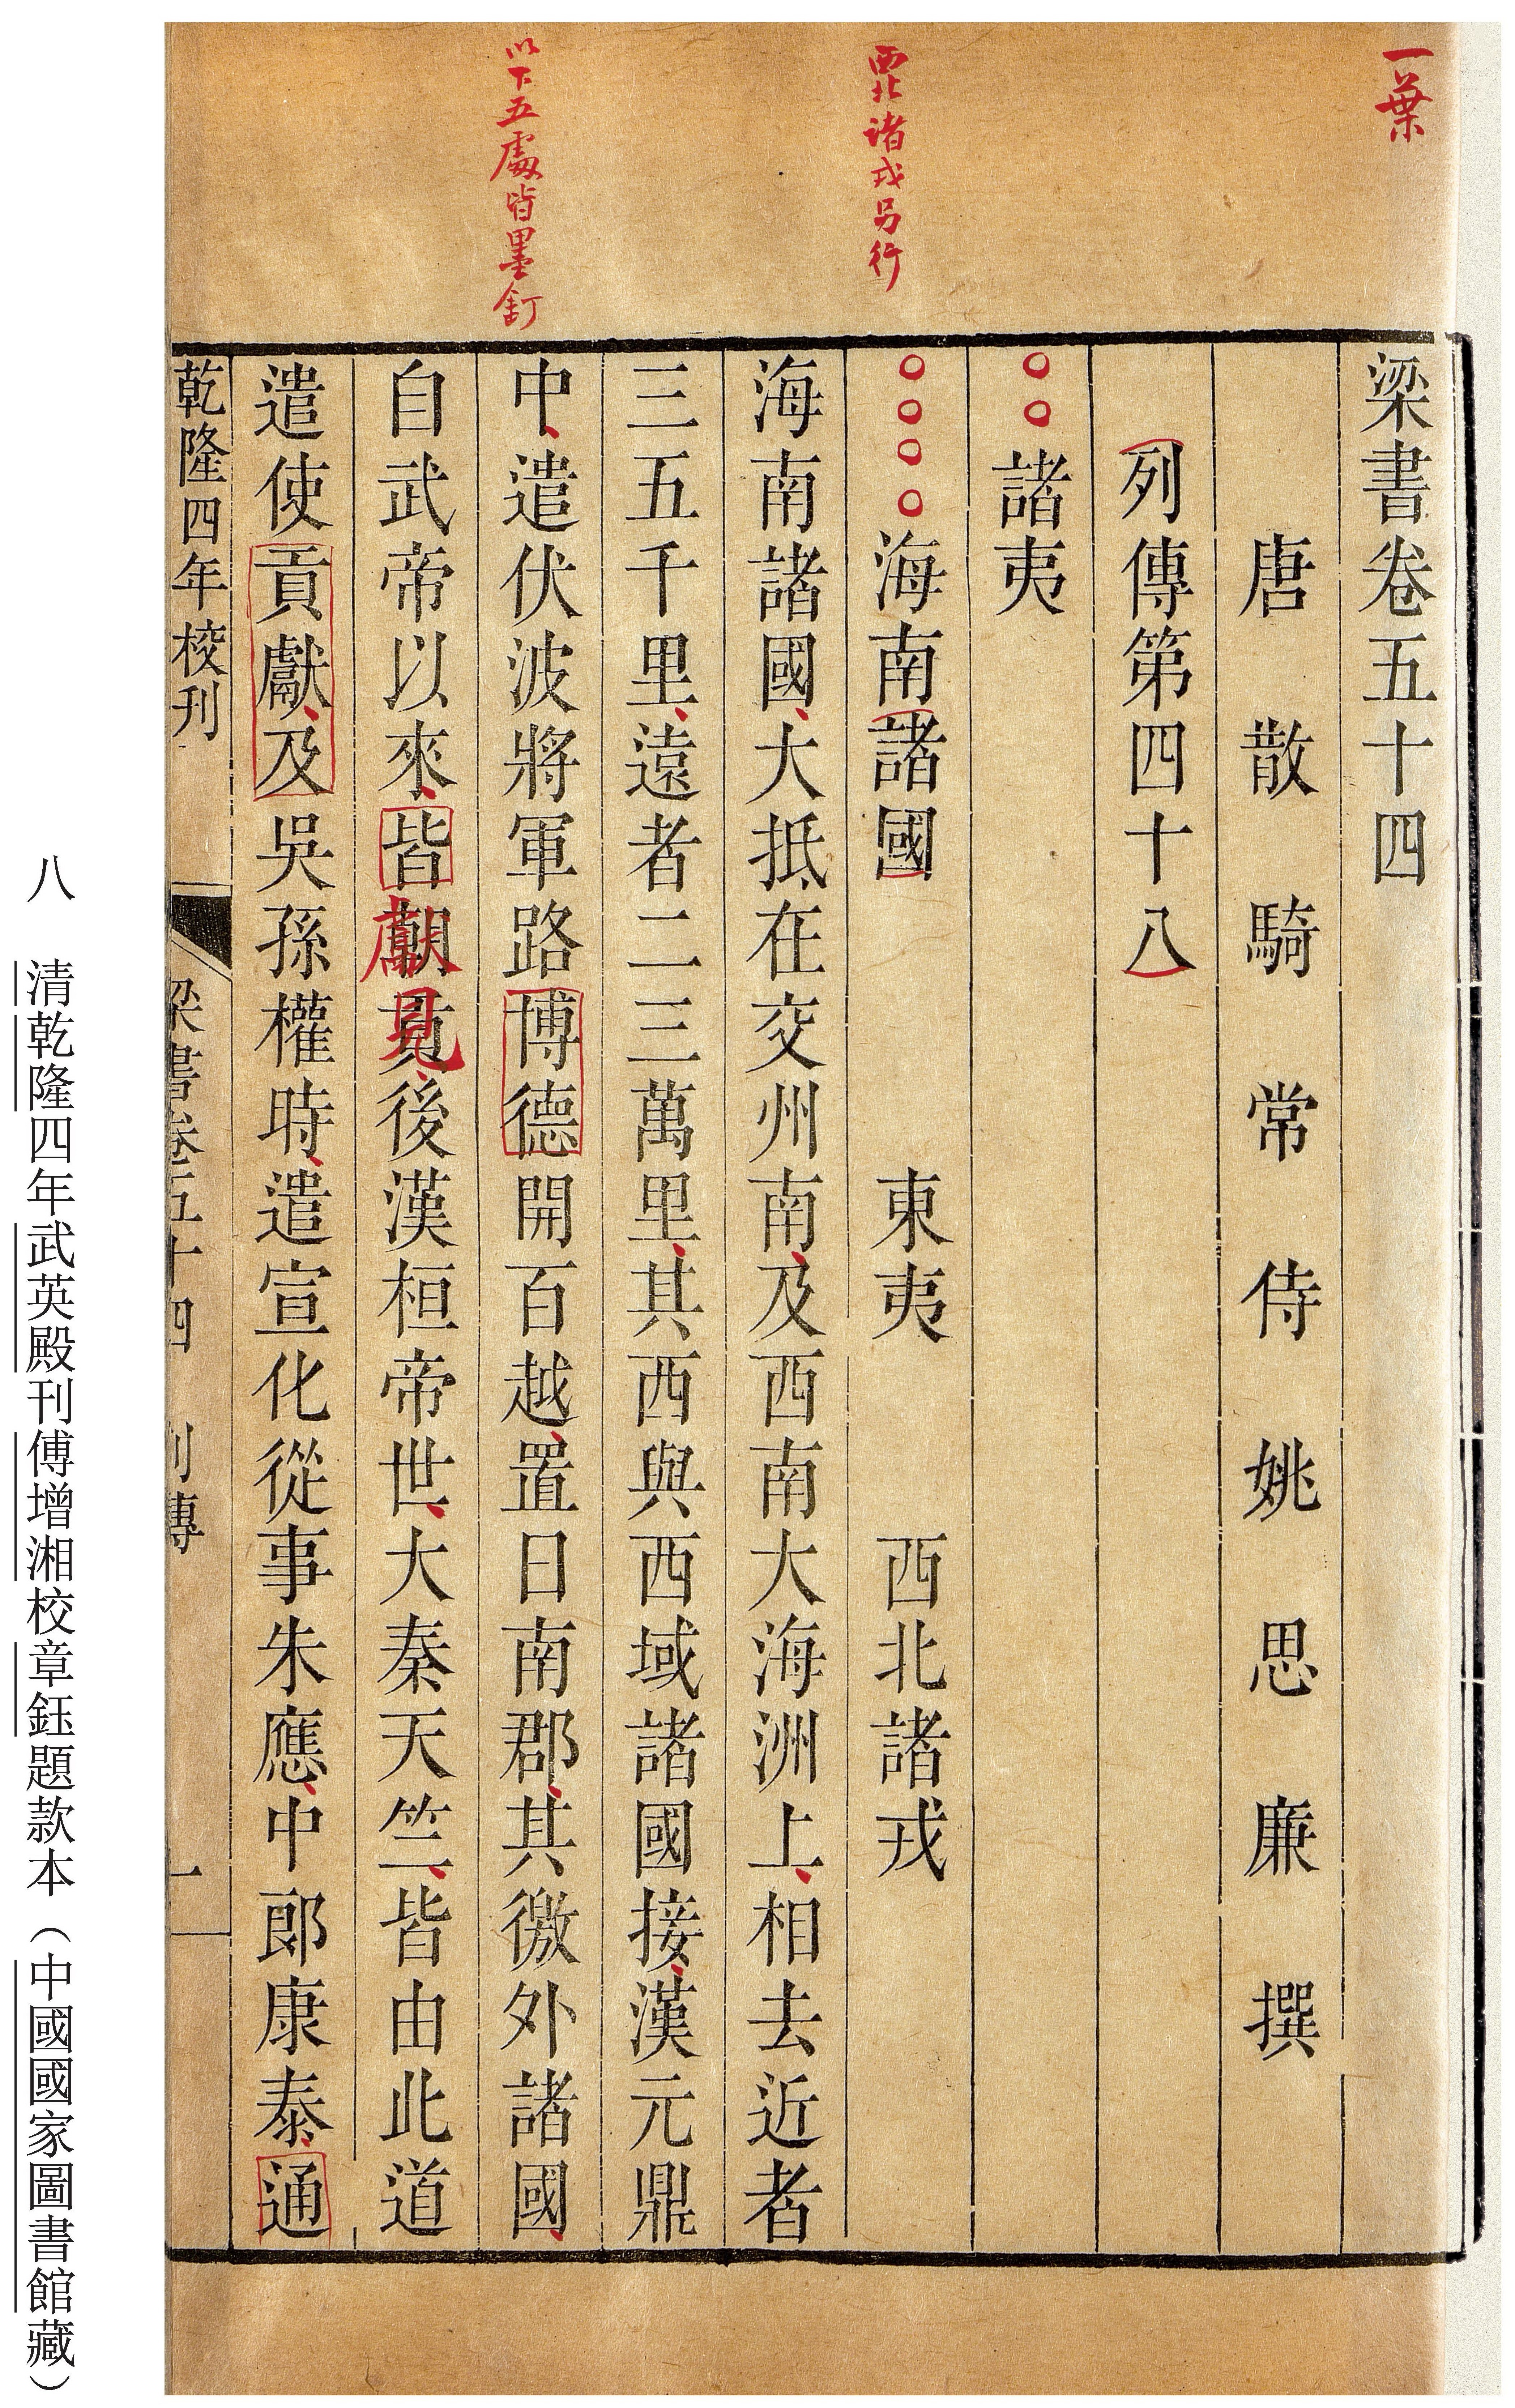 一葉
西北諸戎另行
以下五處皆墨釘
梁書卷五十四
唐散騎常侍姚思廉撰
列傳第四十八
諸夷
海南諸國 東夷 西北諸戎
海南諸國、大抵在交州南、及西南大海洲上、相去近者
三五千里、遠者二三萬里、其西與西域諸國接、漢元鼎
中、遣伏波將軍路博德開百越、置日南郡、其徼外諸國、
自武帝以來、皆朝貢、後漢桓帝世、大秦天竺、皆由此道
獻見
遣使貢獻、及吳孫權時、遣宣化從事朱應、中郎康泰、通
乾隆四年校刊
梁書卷五十四 列傳 一
八 清乾隆四年武英殿刊傅增湘校章鈺題款本（中國國家圖書館藏）